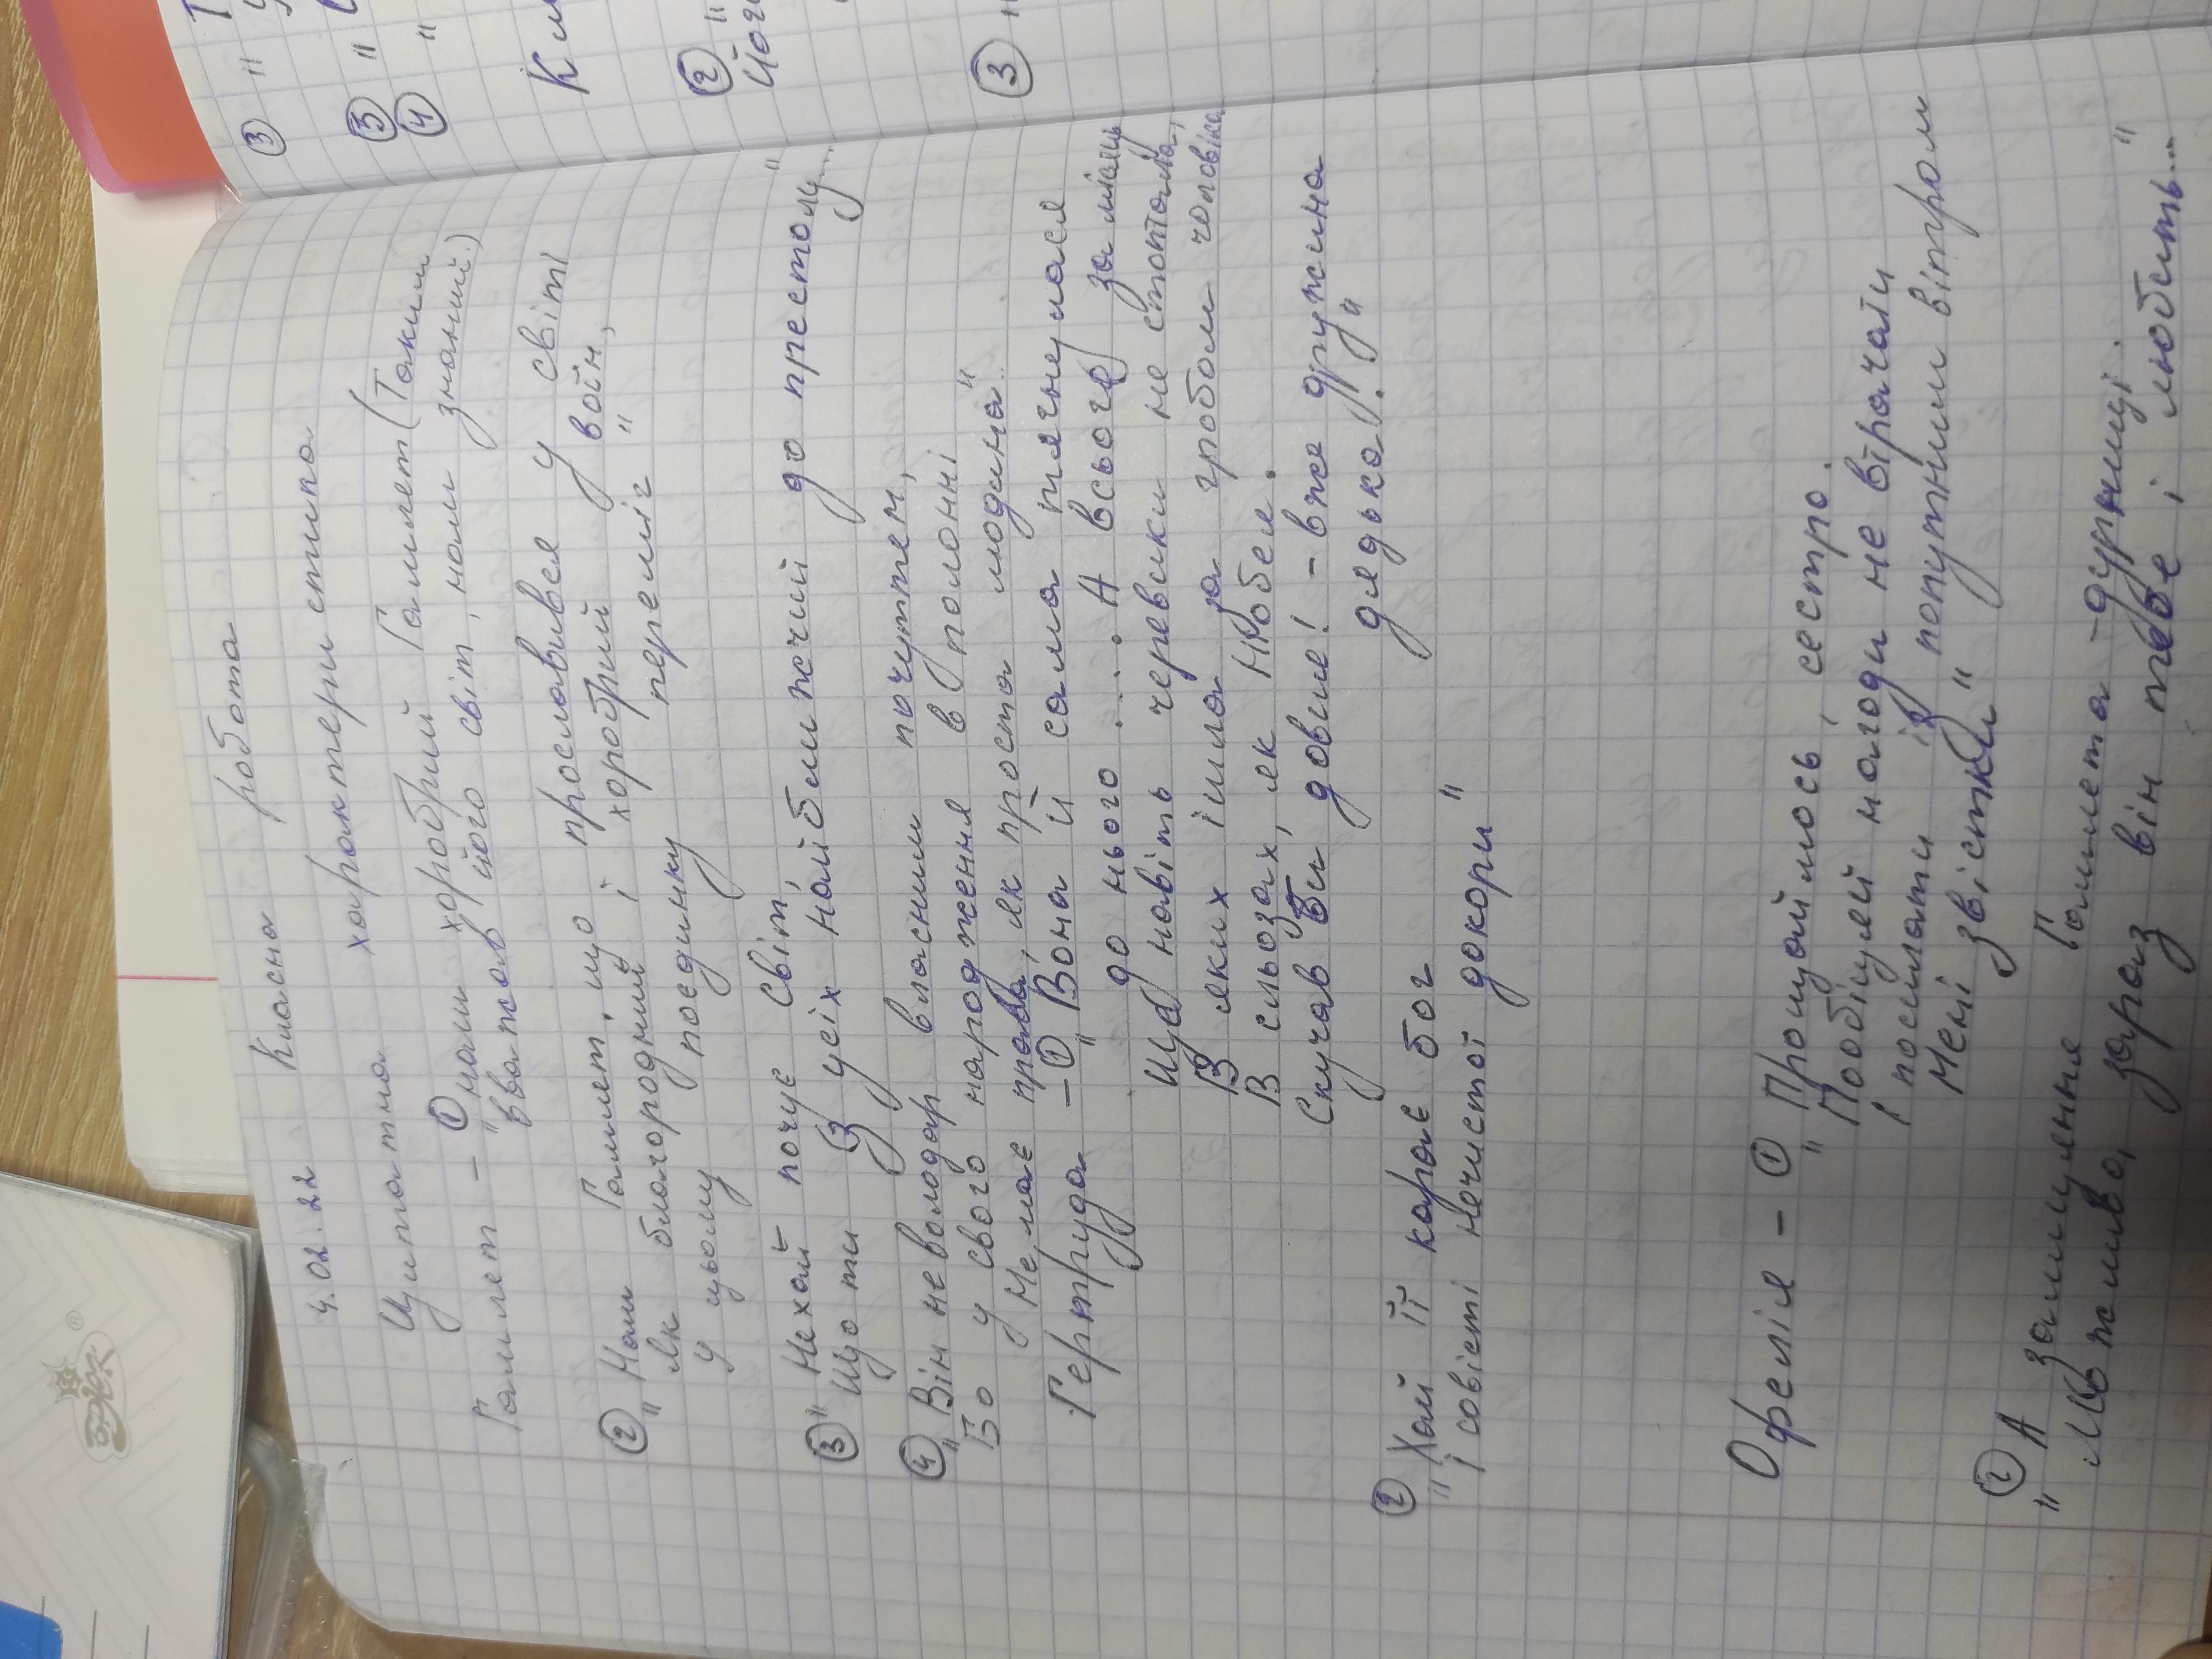 4.02.22 Класна робота
Цитатна характеристика
Гамлет - ① наш хоробрий Гамлет (Таким
"вважав його світ, нам знаний.)
② Наш Гамлет, що прославився у світі
"як благородний і хоробрий воїн,
у цьому поєдинку переміг"
③ "Нехай почує світ,
Що ти З усіх найближчий до престолу..."
④ "Він не володар власним почуттям,
Бо у свого народження в полоні"
Не має права, як проста людина..
Гертруда - ① "Вона й сама тягнулася
до нього .... А всього за місяць
Ще навіть черевики не стоптала,
В яких ішла за гробом чоловіка
В сльозах, як Ніобея.
Скучав би довше! - вже дружина
дядька!"
② Хай її карає бог
"І совісті нечистої докори"
Офелія - ① Прощаймось, сестро.
"Пообіцяй нагоди не втрачати
І посилати із попутним вітром
Мені звістки"
② А залицяння Гамлета - дурниці.
"Можливо, зараз він тебе і любить..."
③ "
③ "
④ "
Кл
② "
Його
③ "